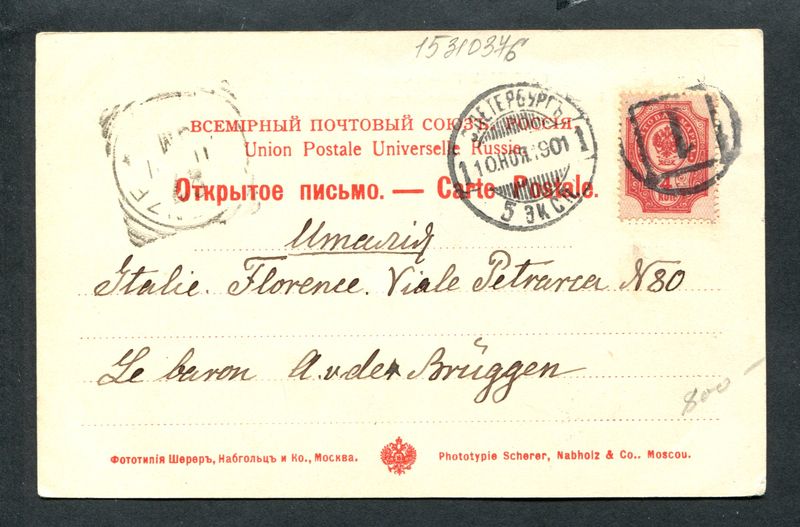 15310376
ВСЕМІРНЫЙ ПОЧТОВЫЙ СОЮЗЪ. РОССІЯ
Union Postale Universelle Russie.
Открытое письмо. — Carte Postale.
ПЕТЕРБУРГЪ
1 10.НОЯ.1901 1
5 ЭКСП.
1
4
КОП
Италія
Italie. Florence. Viale Petrarca N80
Le baron A.v.der Brüggen
800-
Фототипія Шереръ, Набгольцъ и Ко., Москва.
Phototypie Scherer, Nabholz & Co.. Moscou.